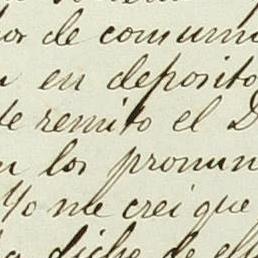 de consumo
en deposito
remito el D
los pronun
Yo me crei que
dicho de ell